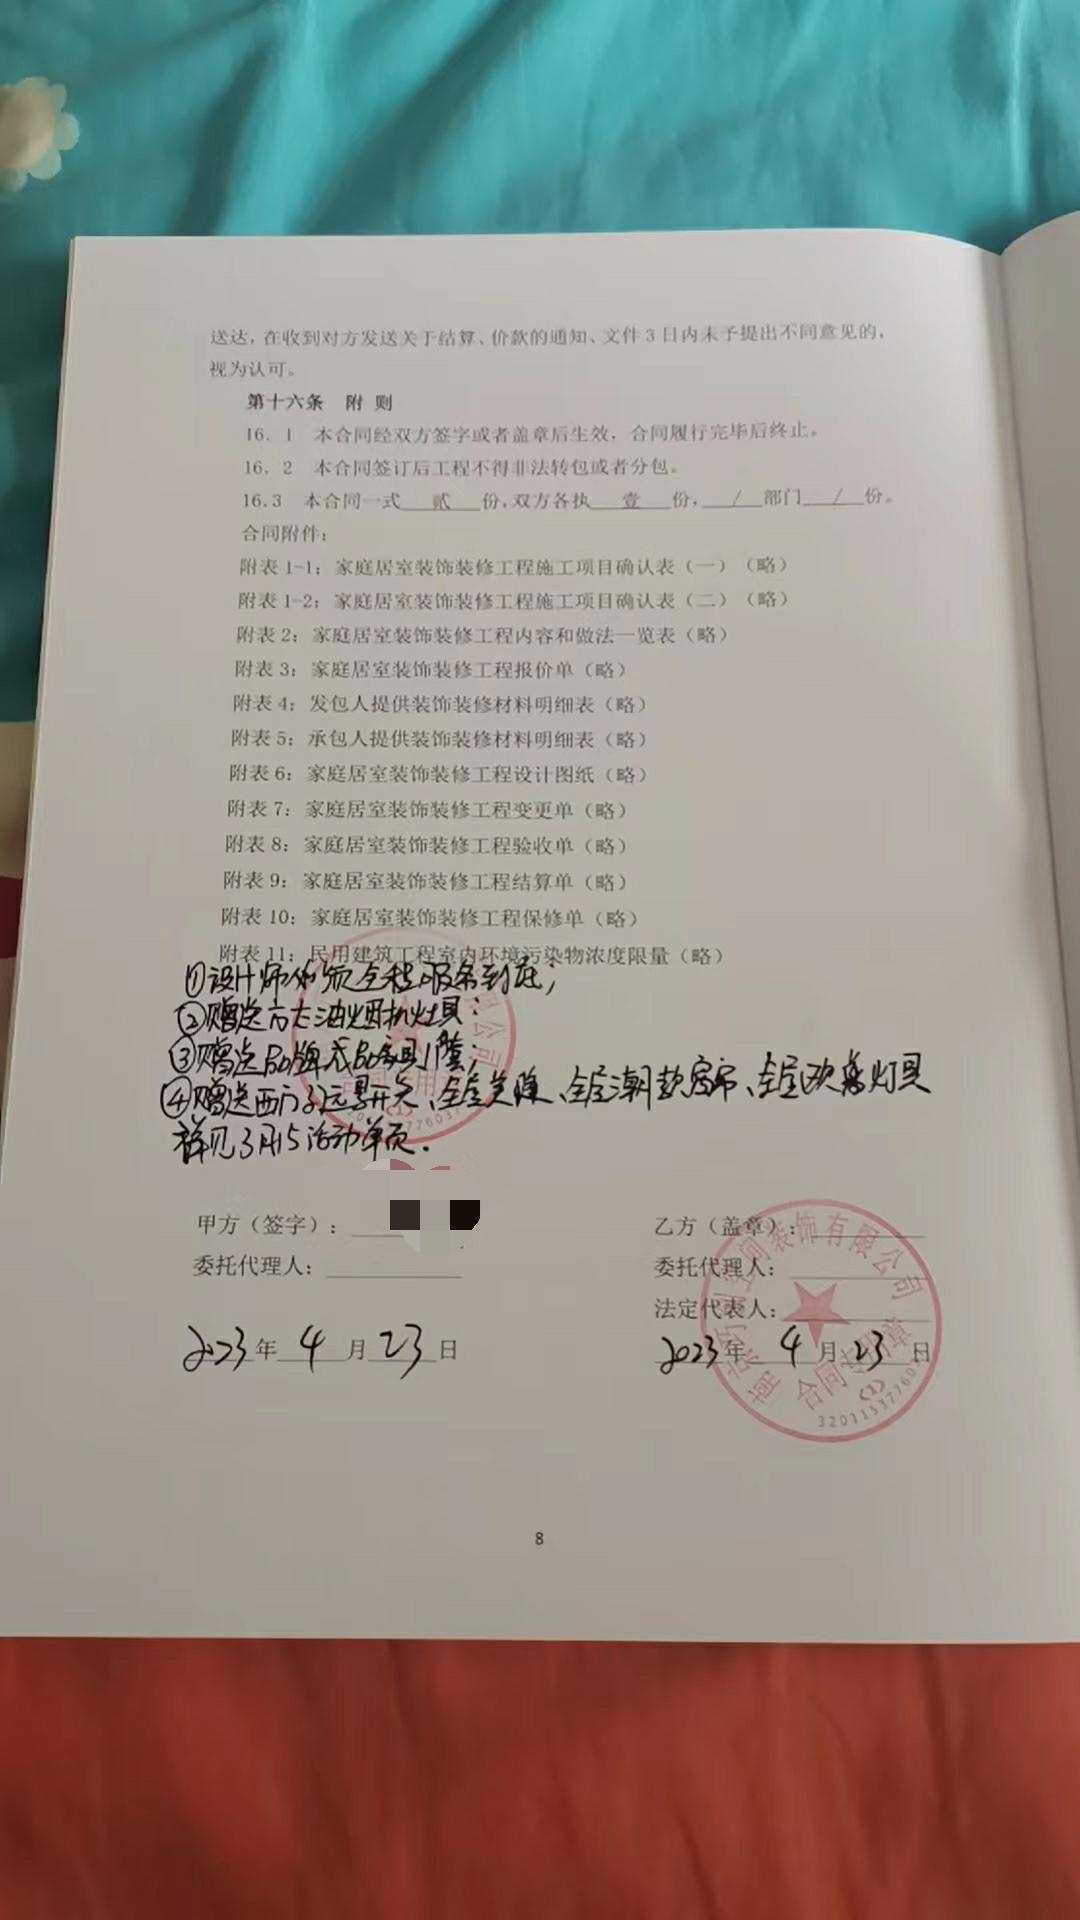 送达，在收到对方发送关于结算、价款的通知、文件 3 日内未予提出不同意见的，
视为认可。
第十六条 附 则
16．1 本合同经双方签字或者盖章后生效，合同履行完毕后终止。
16．2 本合同签订后工程不得非法转包或者分包。
16.3 本合同一式 贰 份，双方各执 壹 份， / 部门 / 份。
合同附件：
附表 1-1：家庭居室装饰装修工程施工项目确认表（一）（略）
附表 1-2：家庭居室装饰装修工程施工项目确认表（二）（略）
附表 2：家庭居室装饰装修工程内容和做法一览表（略）
附表 3：家庭居室装饰装修工程报价单（略）
附表 4：发包人提供装饰装修材料明细表（略）
附表 5：承包人提供装饰装修材料明细表（略）
附表 6：家庭居室装饰装修工程设计图纸（略）
附表 7：家庭居室装饰装修工程变更单（略）
附表 8：家庭居室装饰装修工程验收单（略）
附表 9：家庭居室装饰装修工程结算单（略）
附表 10：家庭居室装饰装修工程保修单（略）
附表 11：民用建筑工程室内环境污染物浓度限量（略）
①设计师必须全程服务到底；
②赠送方太油烟机灶具；
③赠送品牌成品家具1；
④赠送西门子远景开关、全屋、全屋潮款窗帘、全屋灯具
详见3月15活动单页.
甲方（签字）： 乙方（盖章）：
委托代理人： 委托代理人：
法定代表人：
2023年 4 月 23 日 2023年 4 月 23 日
空间装饰有限公司
合同专用章
(1)
8